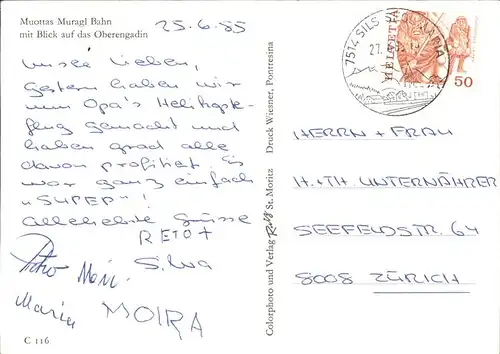 Muottas Muragl Bahn
mit Blick auf das Oberengadin
25.6.85
Unsere Lieben,
Gestern haben wir
nun Opa's
flug gemacht und
haben grad alle
davon profitiert. Es
war ganz einfach
"SUPER"!
Allerliebste Grüsse
RETO +
Silva
Maria
MOIRA
C 116
Colorphoto und Verlag St. Moritz Druck Wiesner, Pontresina
7514 SILS SEGL MARIA
HELVETIA
50
HERRN + FRAU
H. + TH. UNTERNÄHRER
SEEFELDSTR. 64
8008 ZÜRICH